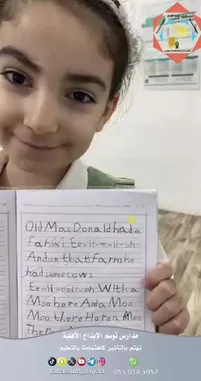 Old MacDonald had a
Farm Ee-ii-ee-ii-oh
And on that farm he
had some cows
Ee-ii-ee-ii-oh With a
Moo here And a Moo
Moo there Here a Moo
مدارس توسم الإبداع الأهلية
نهتم بالتأثير كاهتمامنا بالتعليم
055 014 5057